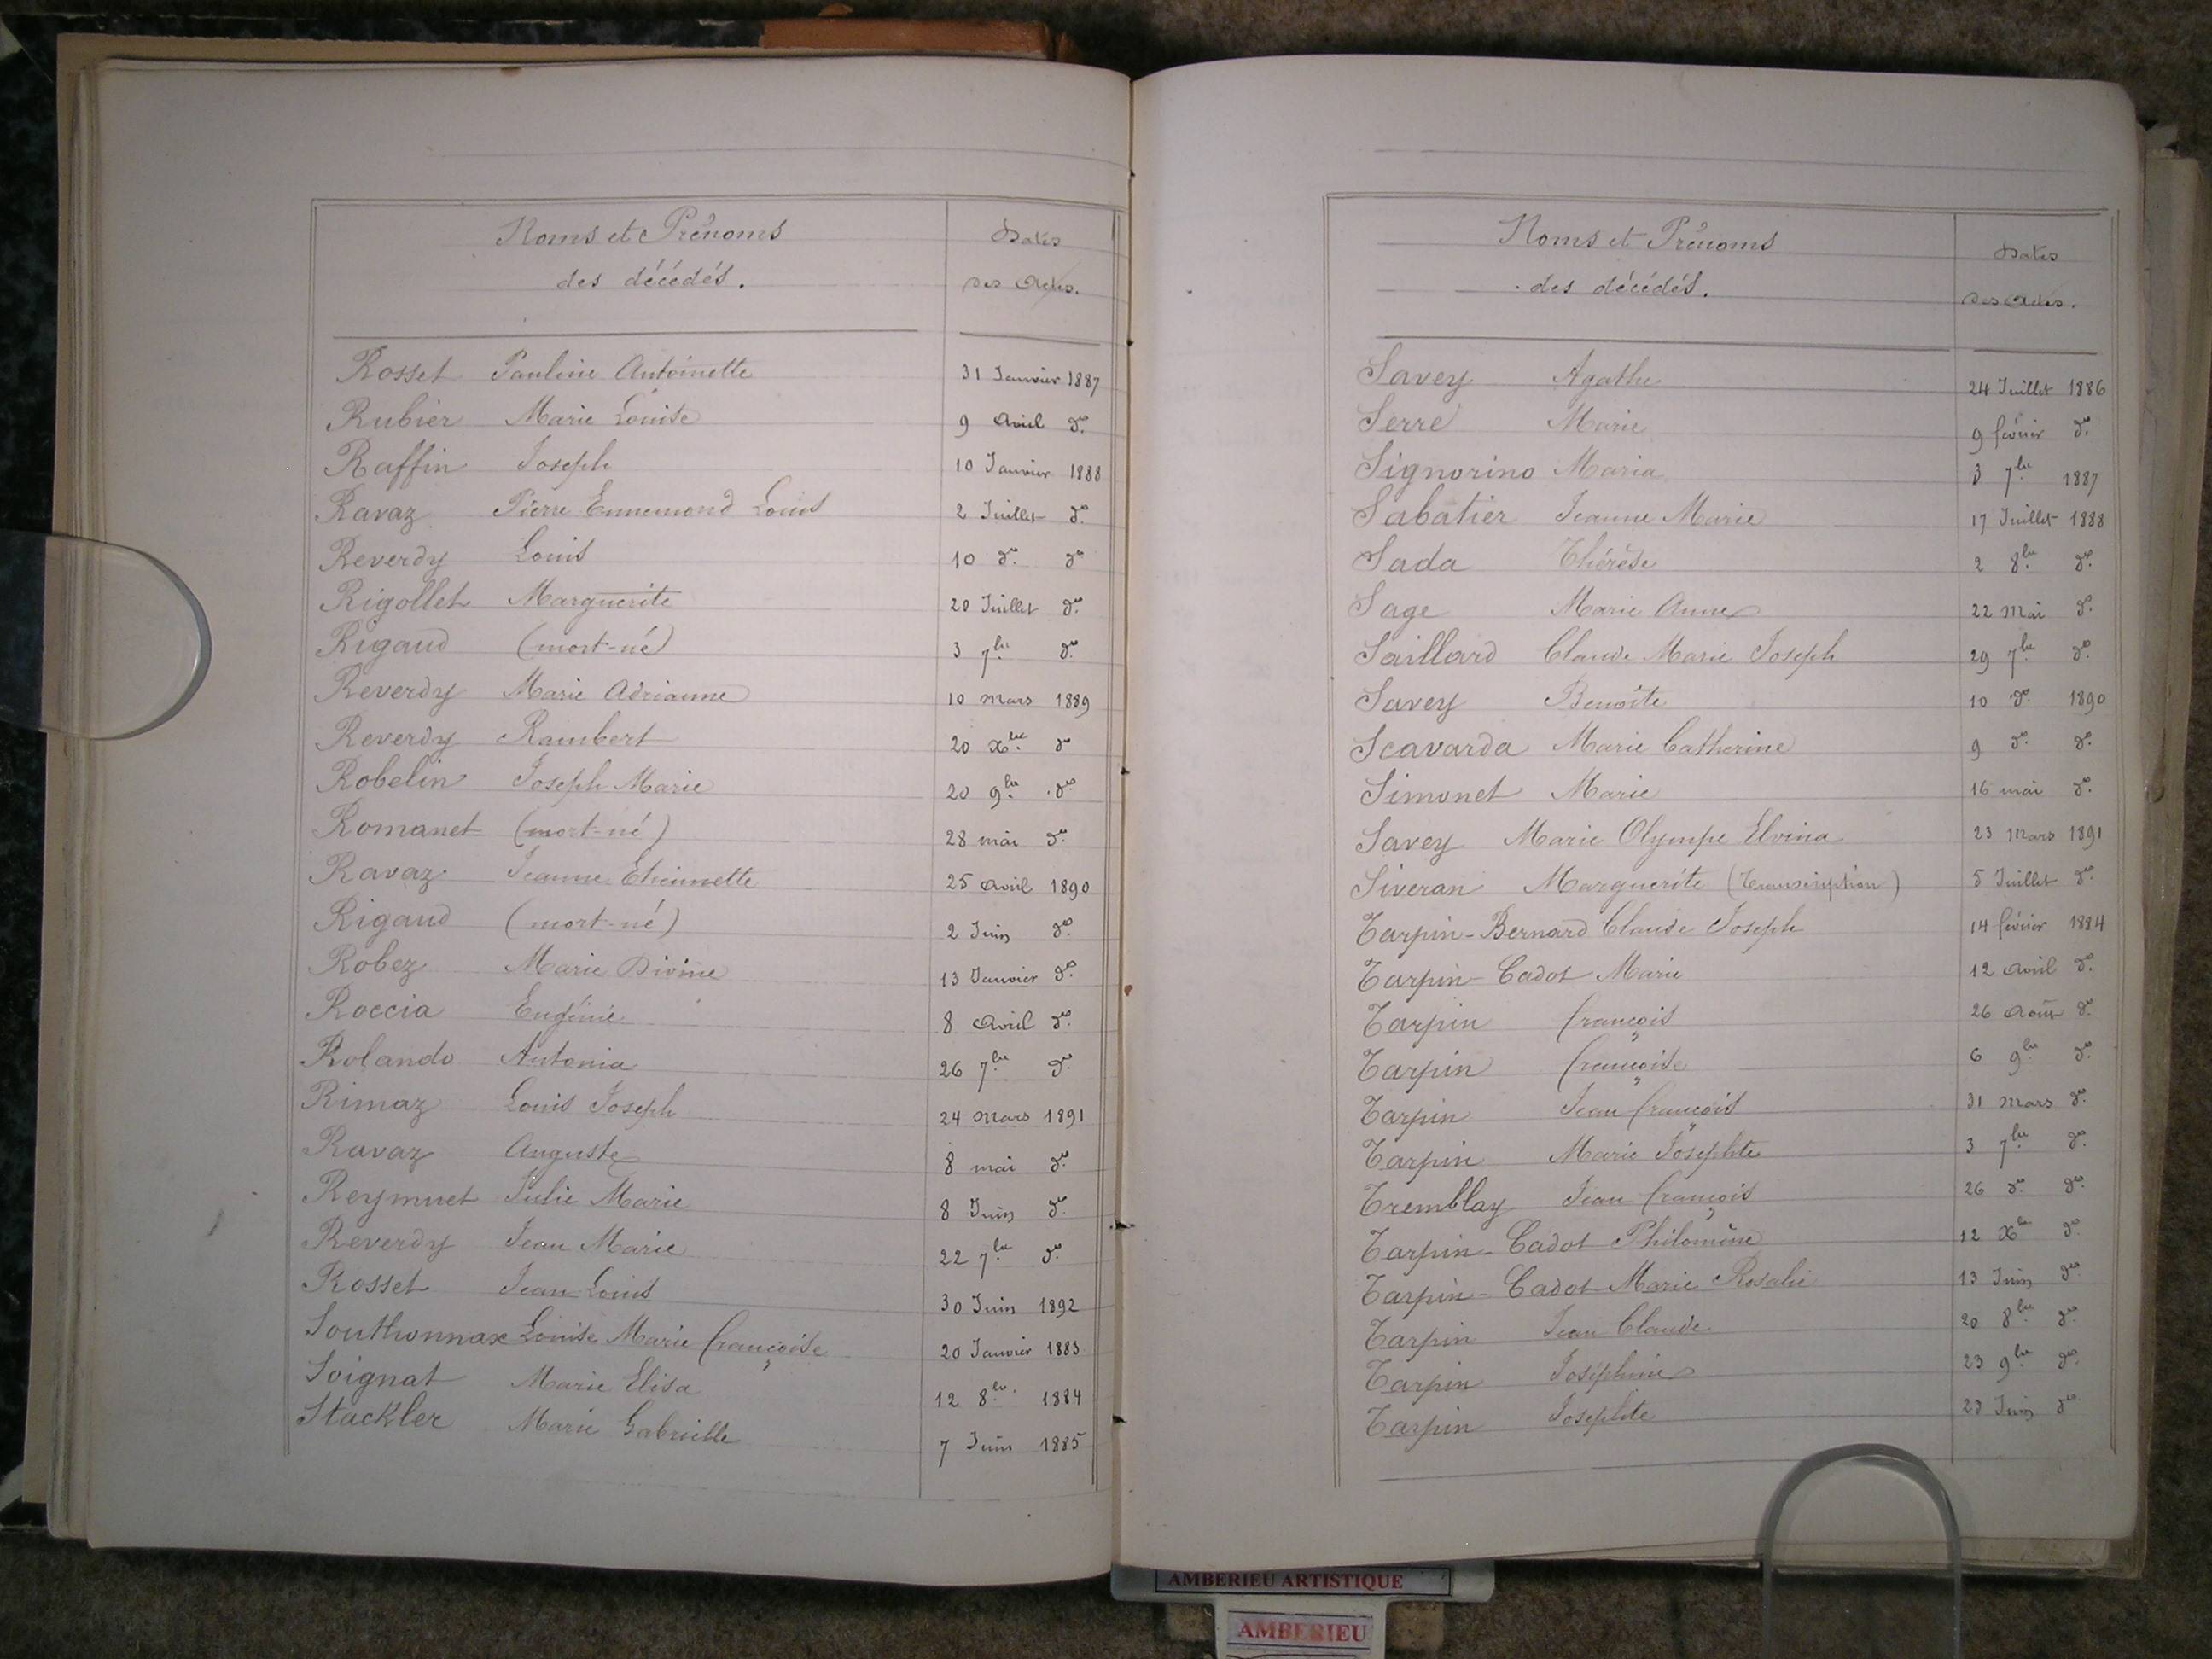 Noms et Prénoms Dates
des décédés. des Actes.
Rosset Pauline Antoinette 31 Janvier 1887
Rubier Marie Louise 9 Avril do.
Raffin Joseph 10 Janvier 1888
Ravaz Pierre Ennemond Louis 2 Juillet do.
Reverdy Louis 10 do. do
Rigollet Marguerite 20 Juillet do.
Rigaud (mort-né) 3 7bre do.
Reverdy Marie Adrianne 10 mars 1889
Reverdy Rambert 20 Xbre do
Robelin Joseph Marie 20 9bre do.
Romanet (mort-né) 28 mai do.
Ravaz Jeanne Etiennette 25 avril 1890
Rigaud (mort-né) 2 Juin do.
Robez Marie Divine 13 Janvier do.
Roccia Eugénie 8 Avril do.
Rolando Antonia 26 7bre do.
Rimaz Louis Joseph 24 mars 1891
Ravaz Auguste 8 mai do.
Reymuet Julie Marie 8 Juin do.
Reverdy Jean Marie 22 7bre do.
Rosset Jean Louis 30 Juin 1892
Southonnax Louise Marie françoise 20 Janvier 1883
Soignat Marie Elisa 12 8bre. 1884
Stackler Marie Gabrielle 7 Juin 1885
Noms et Prénoms Dates
des décédés. des Actes.
Savey Agathe 24 Juillet 1886
Serre Marie 9 février do.
Signorino Maria 3 7bre 1887
Sabatier Jeanne Marie 17 Juillet 1888
Sada Thérèse 2 8bre do.
Sage Marie Anne 22 mai do.
Saillard Claude Marie Joseph 29 7bre do.
Savey Benoîte 10 do. 1890
Scavarda Marie Catherine 9 do. do.
Simonet Marie 16 mai do.
Savey Marie Olympe Elvina 23 mars 1891
Siveran Marguerite (Transcription) 5 Juillet do.
Tarpin-Bernard Claude Joseph 14 février 1884
Tarpin-Cadot Marie 12 avril do.
Tarpin françois 26 Août do.
Tarpin françoise 6 9bre do.
Tarpin Jean françois 31 mars do.
Tarpin Marie Josephte 3 7bre do.
Tremblay Jean françois 26 do. do.
Tarpin-Cadot Philomène 12 Xbre do.
Tarpin-Cadot Marie Rosalie 13 Juin do.
Tarpin Jean Claude 20 8bre do.
Tarpin Joséphine 23 9bre do.
Tarpin Josephte Juin do
AMBERIEU ARTISTIQUE
AMBERIEU